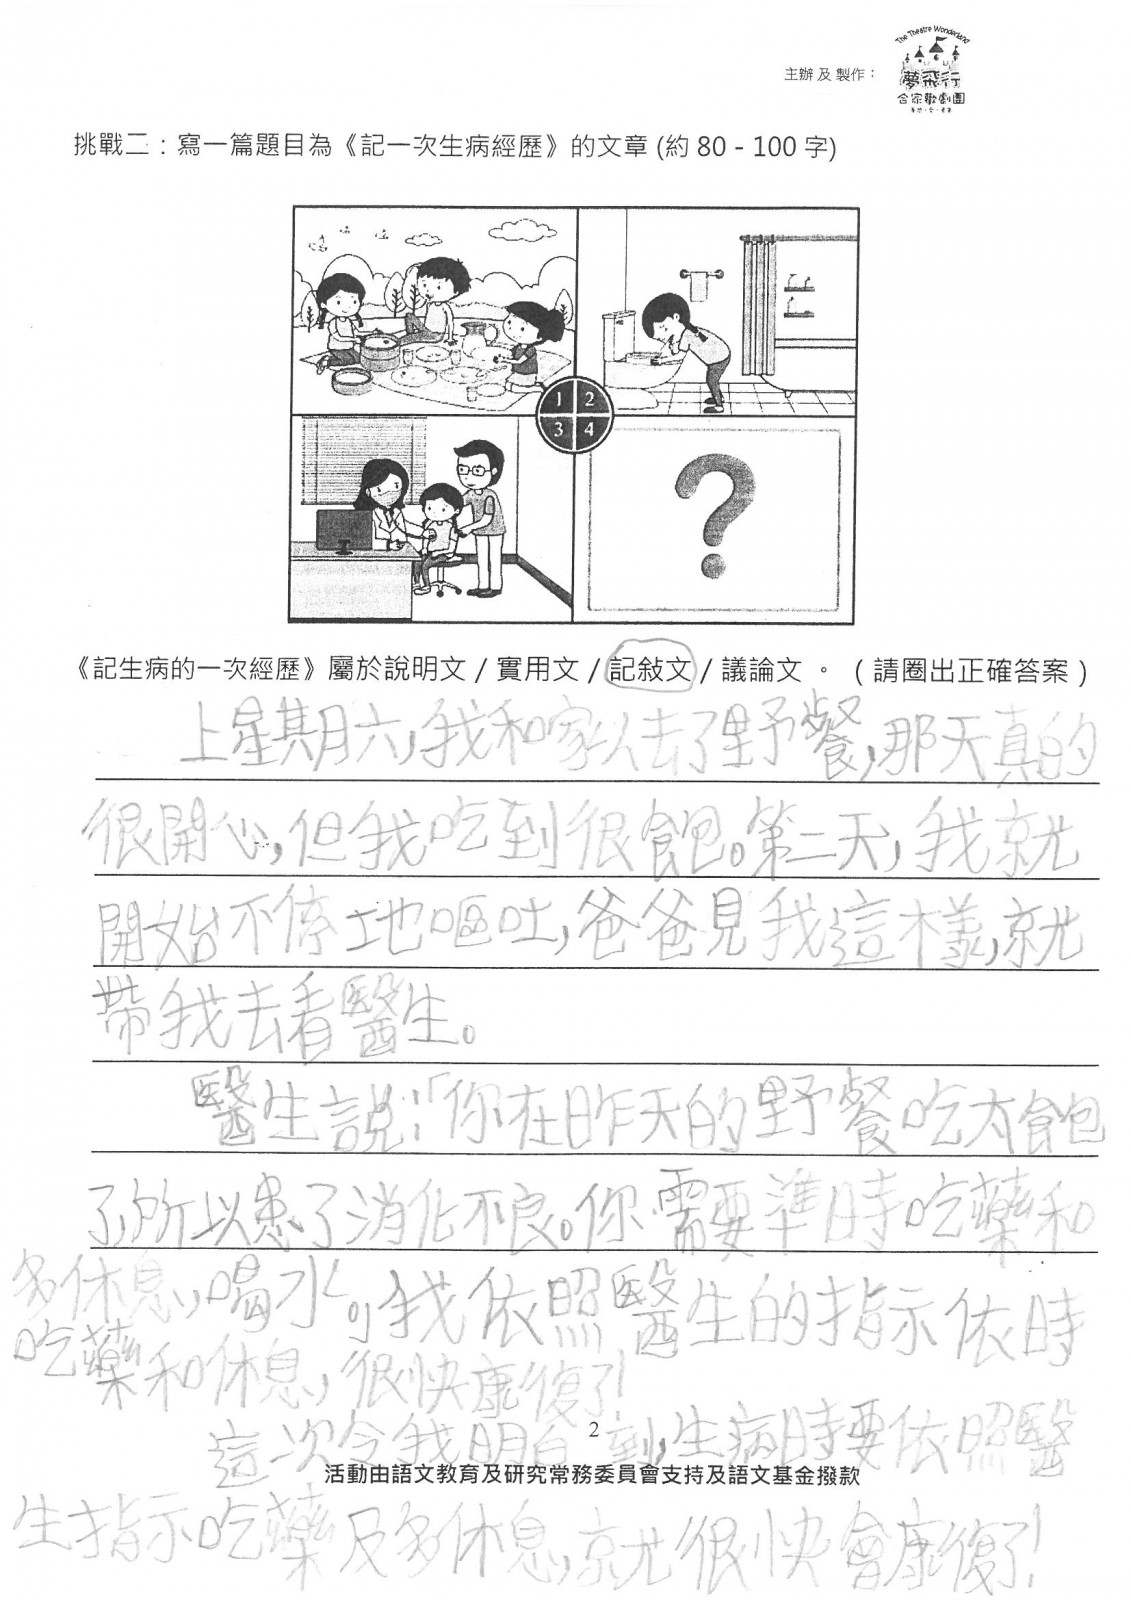 The Theatre Wonderland
主辦 及 製作：
夢飛行
合家歡劇團
挑戰二：寫一篇題目為《記一次生病經歷》的文章 (約 80 - 100 字)
1 2
3 4
?
《記生病的一次經歷》屬於說明文 / 實用文 / 記敍文 / 議論文 。 （ 請圈出正確答案 ）
上星期六，我和家以去了野餐，那天真的
很開心，但我吃到很飽。第二天，我就
開始不停地嘔吐，爸爸見我這樣，就
帶我去看醫生。
醫生說：「你在昨天的野餐吃太飽
了，所以患了消化不良。你需要準時吃藥和
多休息，喝水。」我依照醫生的指示依時
吃藥和休息，很快康復了！
這次令我明白到，生病時要依照醫
2
活動由語文教育及研究常務委員會支持及語文基金撥款
生指示吃藥及多休息，就很快會康復了！